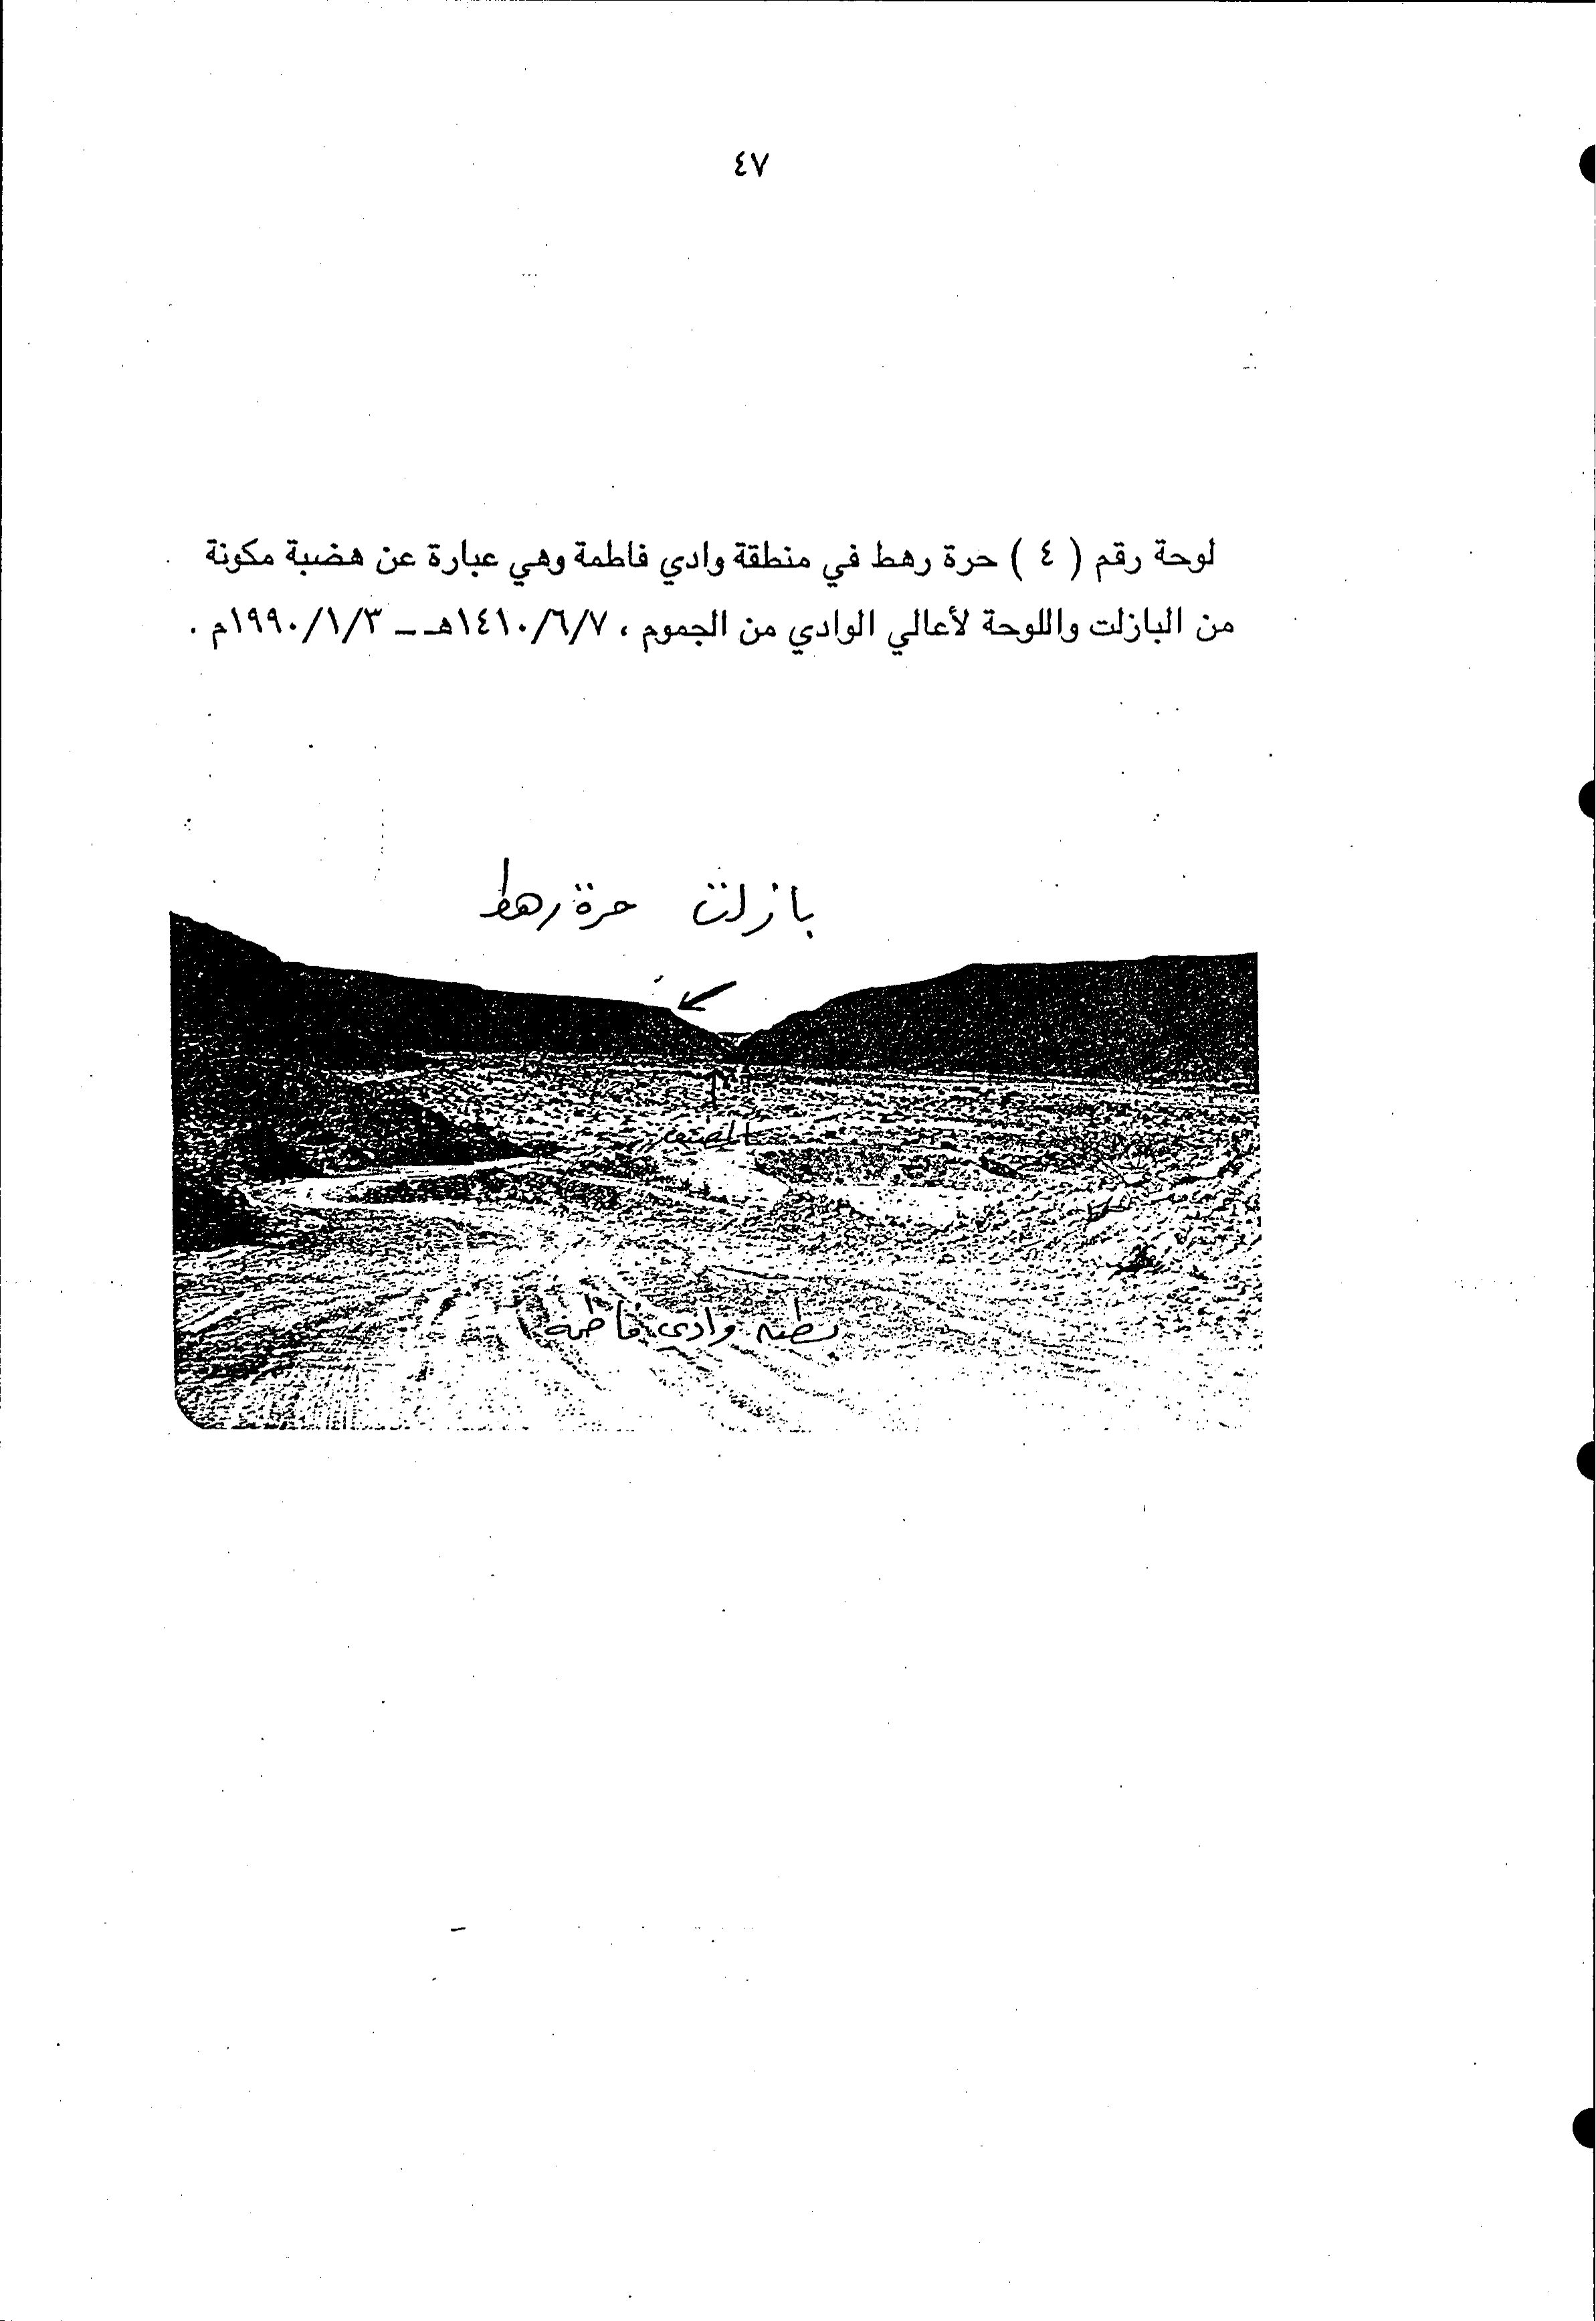 ٤٧
لوحة رقم ( ٤ ) حرة رهط في منطقة وادي فاطمة وهي عبارة عن هضبة مكونة
من البازلت واللوحة لأعالي الوادي من الجموم ، ١٤١٠/٦/٧هـ ــ ١٩٩٠/١/٣م .
بازلت حرة رهط
وادى فاطمة